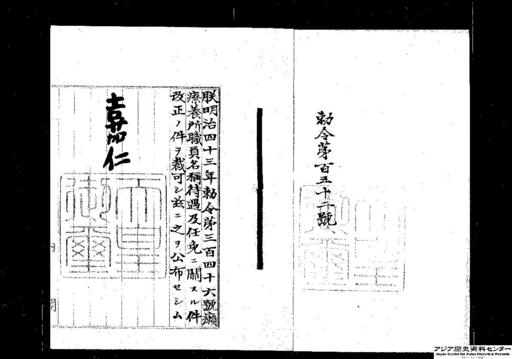 勅令第百五十二號
朕明治四十三年勅令第三百四十六號癩
療養所職員名稱待遇及任免ニ關スル件
改正ノ件ヲ裁可シ茲ニ之ヲ公布セシム
嘉仁
天皇
御璽
内
閣
アジア歴史資料センター
Japan Center for Asian Historical Records